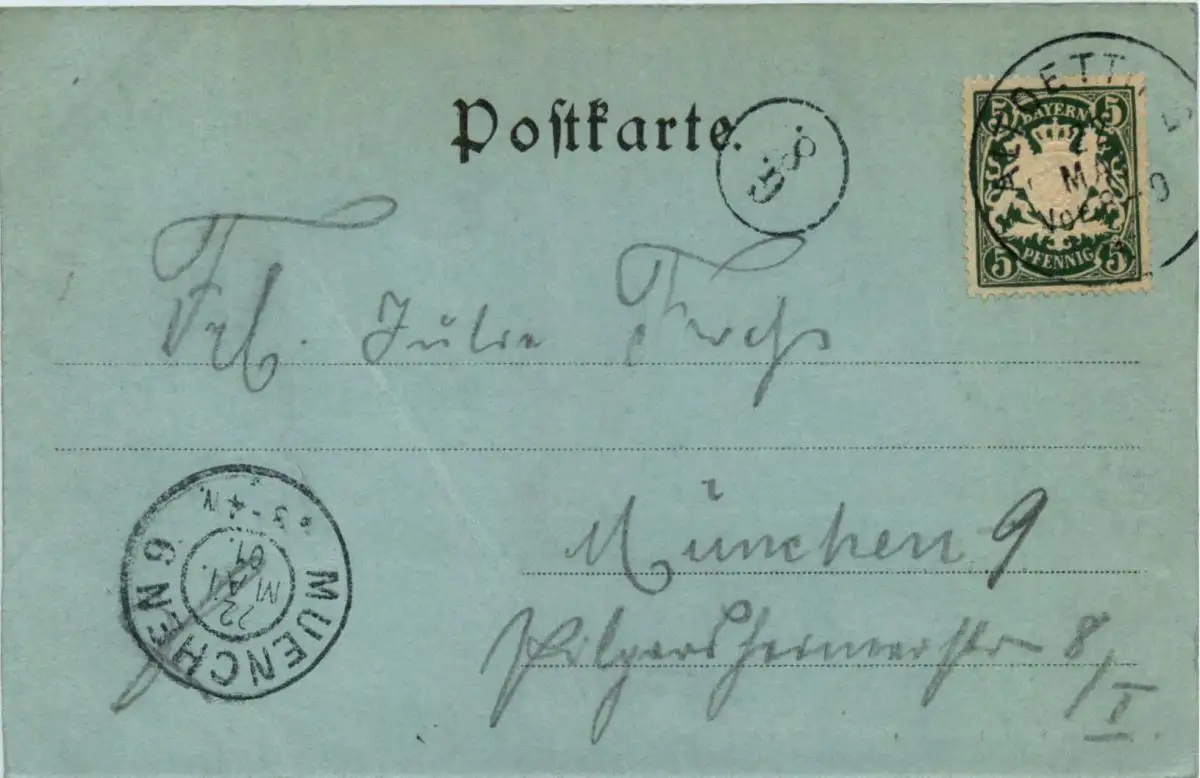 Postkarte.
5 BAYERN 5
5 PFENNIG 5
ALTOETTING
MAI
Frl. Julie Fuchs
München 9
Pilgersheimerstr 8/I
MUENCHEN 9
22
MAI.
01.
3-4 N.